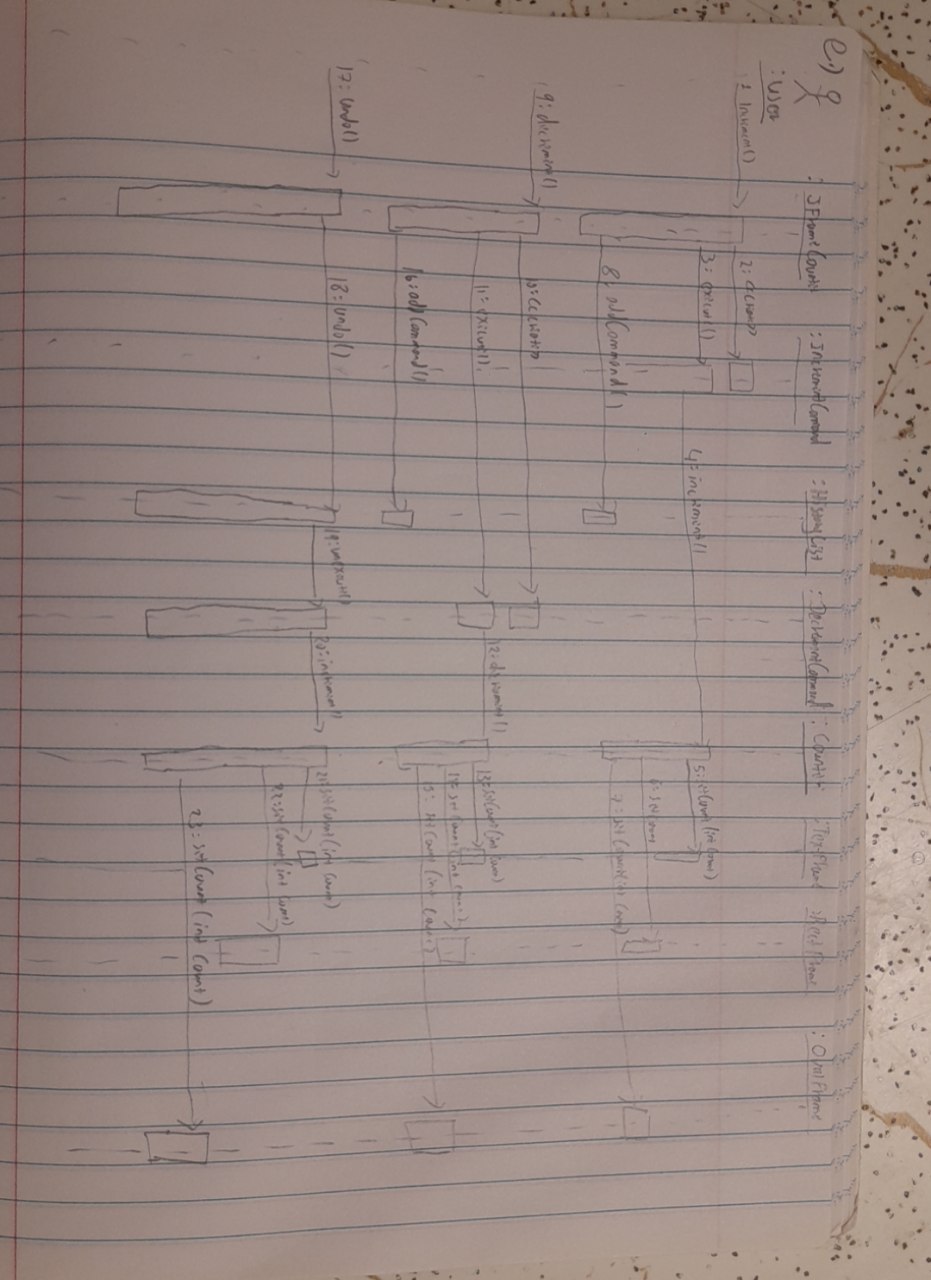 e.)
:User
: JFrameCounter
: IncrementCommand
: HistoryList
: DecrementCommand
: Counter
: TextFrame
: RectFrame
: OvalFrame
1: increment()
2: <create>>
3: execute()
4: increment()
5: setCount(int count)
6: setCount
7: setCount(int count)
8: addCommand()
9: decrement()
10: <create>>
11: execute()
12: decrement()
13: setCount(int count)
14: setCount(int count)
15: setCount(int count)
16: addCommand()
17: undo()
18: undo()
19: unexecute()
20: increment()
21: setCount(int count)
22: setCount(int count)
23: setCount(int count)